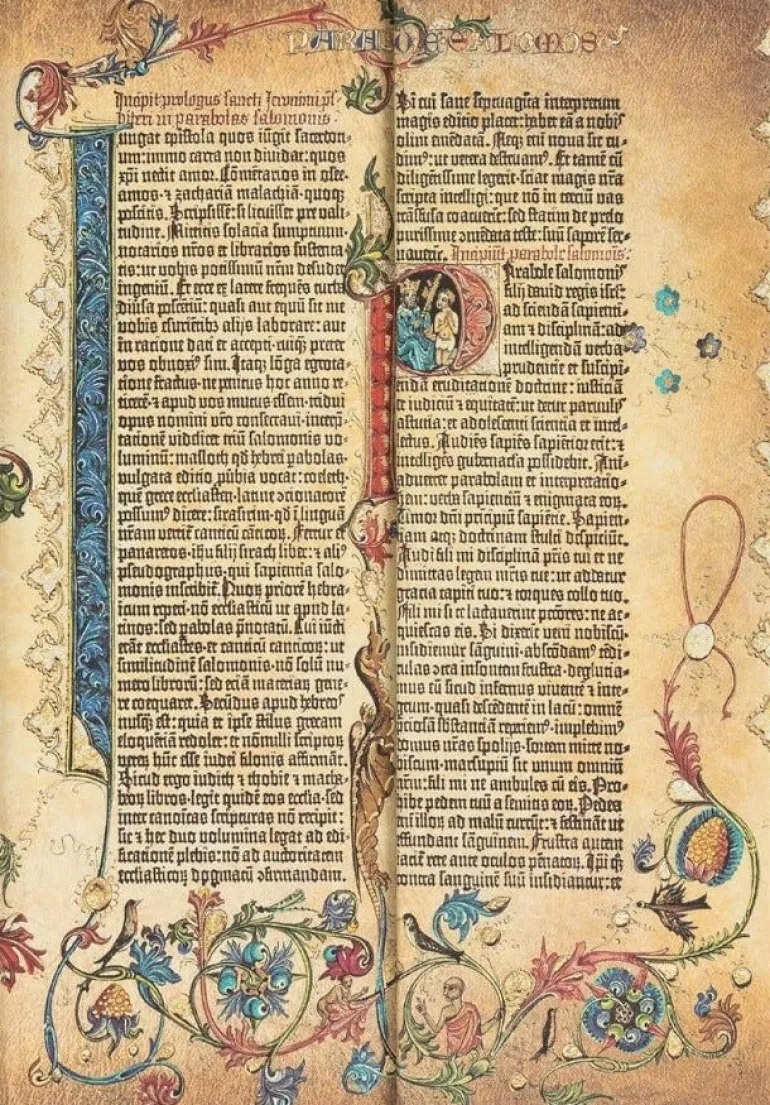 PARABOLE SALOMOIS
Incipit prologus sancti Jeronimi ps-
biteri in parabolas salomonis
Iungat epistola quos iūgit sacerdoti-
um: immo carta non diuidat: quos
xp̄i nectit amor. Cōmētarios in osee.
amos. ⁊ zachariā malachiā. quoq̄ꝫ
poscitis. Scripsissē: si licuisset pre vali-
tudine. Mittitis solacia sumptuum.
notarios nr̄os et librarios sustenta-
tis: ut vobis potissimū nr̄m desudet
ingeniū. Et ecce ex latere frequēs turba
diu̾sa poscētiū: quasi aut equū sit me
vobis esurientibꝫ alijs laborare: aut
in racione dati et accepti. cuiq̄ꝫ preter
vos obnoxiꝰ sim. Itaqꝫ lōga egrota-
tione fractus. ne penitus hoc anno re-
ticerē. ⁊ apud vos mutus essem. tridui
opus nomini vr̄o consecraui. interp̄-
tationē videlicet triū salomonis vo-
luminū: masloth qd̄ hebrei ꝑabolas.
vulgata editio ꝓubia vocat: coeleth.
quē grece ecclesiasten. latine ɔcionatorē
possumꝰ dicere: sirasirim. qd̄ i linguā
nr̄am vertit̄ canticū cāticoꝝ. Fertur et
panaretos. ihu filij sirach liber: ⁊ aliꝰ
pseudographus. qui sapientia salo-
monis inscribit̄. Quoꝝ priorē hebra-
icum repperi. nō ecclesiasticū ut apud la-
tinos: sed ꝑabolas p̄notatū. Cui iūcti
erāt ecclesiastes. et canticū canticoꝝ: ut
similitudinē salomonis. nō solū nu-
mero librorū: sed eciā materiaꝝ gene-
re coequaret. Secūdus apud hebreos
nusqꝫ est: quia et ipse stilus grecam
eloquētiā redolet: et nōnulli scriptoꝝ
veteꝝ hūc esse iudei filonis affirmāt.
Sicud ergo iudith ⁊ thobie ⁊ macha-
beoꝝ libros. legit quidē eos ecclesia. sed
inter canoicas scripturas nō recipit:
sic ⁊ hec duo volumina legat ad edi-
ficationē plebis: nō ad auctoritatem
ecclesiasticoꝝ dogmatū ɔfirmandam.
Si cui sane septuaginta interpretum
magis editio placet: habet eā a nobis
olim emēdatā. Neqꝫ eni̅ noua sic cu-
dimꝰ: ut vetera destruamꝰ. Et tamē cū
diligētissime legerit. sciat magis nr̄a
scripta intelligi: que nō in terciū vas
trāsfusa coacuerit: sed statim de prelo
purissime ɔmēdata teste: suū saporē ser-
uauerit. Incipiūt parabole salomōis:
Parabole salomonis
filij dauid regis isrl̄:
ad sciēdā sapienti-
am ⁊ disciplinā: ad
intelligendā verba
prudentie et suscipi-
endā eruditationē doctrine: iusticiā
et iudiciū ⁊ equitatē: ut detur paruulis
astutia: et adolescenti scientia et intel-
lectus. Audiēs sapiēs sapiētior erit: ⁊
intelligēs gubernacla possidebit. Ani-
aduertet parabolam et interpretatio-
nem: verba sapientiū ⁊ enigmata eoꝝ.
Timor dn̄i pricipiū sapiētie. Sapien-
tiam atqꝫ doctrinam stulti despiciūt.
Audi fili mi disciplinā pr̄is tui et ne
dimittas legem mr̄is tue: ut addatur
gracia capiti tuo: ⁊ torques collo tuo.
Fili mi si te lactauerint pctōres: ne ac-
quiescas eis. Si dixerit veni nobiscū.
insidiemur sāguini. abscōdamꝰ tēdi-
culas ɔtra insontem frustra. deglutia-
mus eū sicud infernus viuentē ⁊ inte-
grum. quasi descēdentē in lacū: omnē
p̄ciosā sbstanciā reperiemꝰ. implebimꝰ
domus nr̄as spolijs. sortem mitte no-
biscum. marsupiū sit unum omniū
nr̄m: fili mi ne ambules cū eis. Pro-
hibe pedem tuū a semitis eoꝝ. Pedes
eni̅ illoꝝ ad malū currūt: ⁊ festināt ut
effundant sāguinem. Frustra autem
iacit̄ rete ante oculos pēnatoꝝ. Ip̄i qꝫ
contra sanguinē suū insidiantur: et